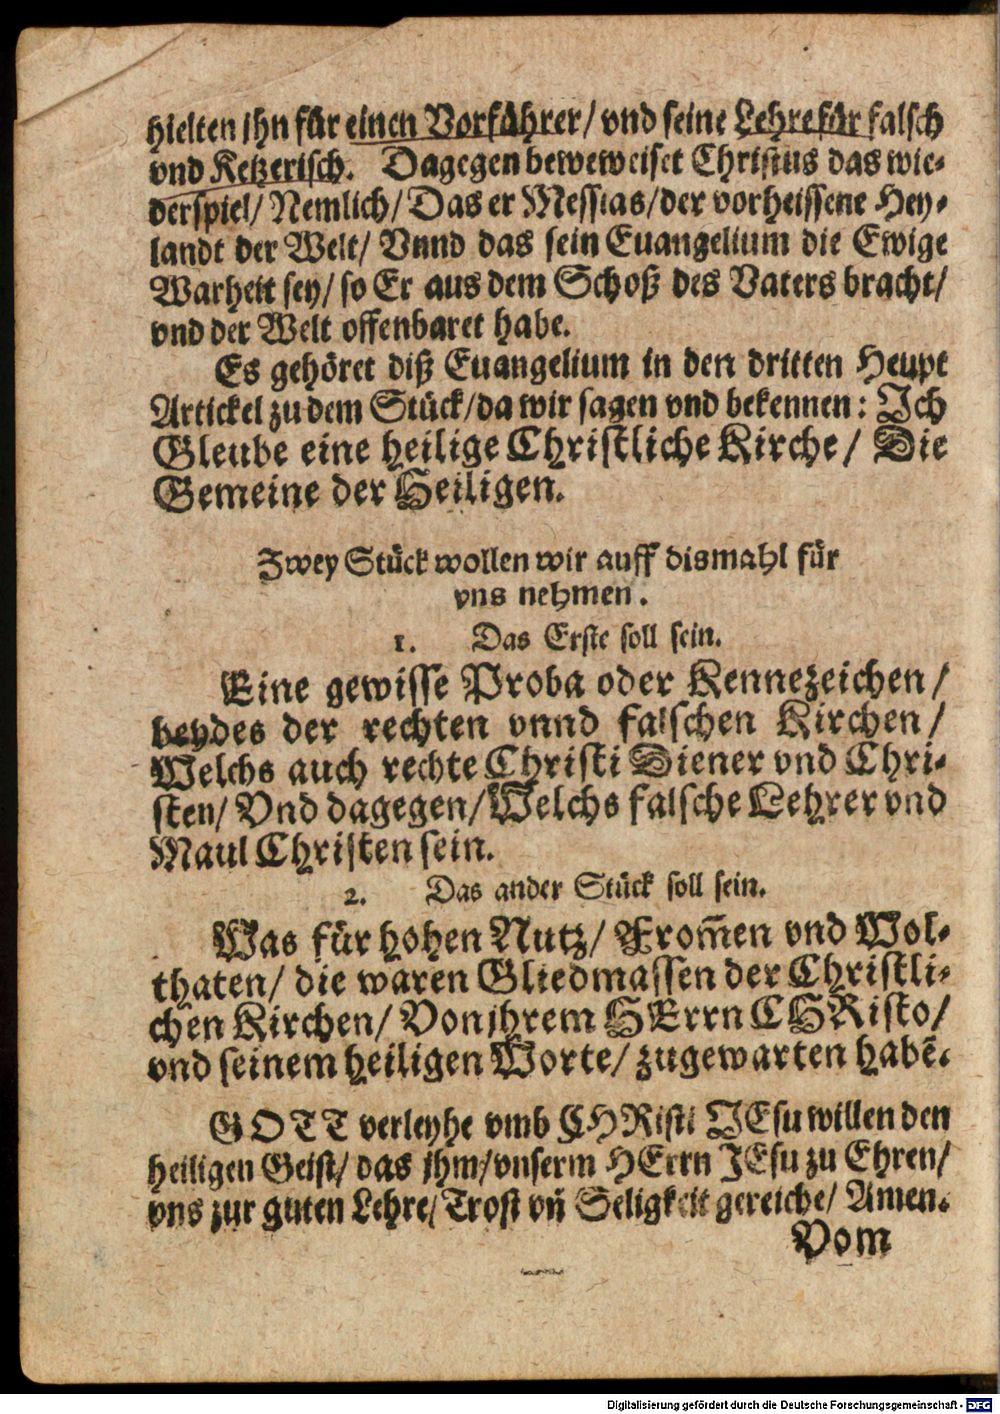 hielten jhn für einen Vorführer/ vnd seine Lehre für falsch
vnd Ketzerisch. Dagegen beweweiset Christus das wie-
derspiel/ Nemlich/ Das er Messias/ der vorheissene Hey-
landt der Welt/ Vnnd das sein Euangelium die Ewige
Warheit sey/ so Er aus dem Schoß des Vaters bracht/
vnd der Welt offenbaret habe.
Es gehöret diß Euangelium in den dritten Heupt
Artickel zu dem Stück/ da wir sagen vnd bekennen: Ich
Gleube eine heilige Christliche Kirche/ Die
Gemeine der Heiligen.
Zwey Stück wollen wir auff dismahl für
vns nehmen.
1. Das Erste soll sein.
Eine gewisse Proba oder Kennezeichen/
beydes der rechten vnnd falschen Kirchen/
Welchs auch rechte Christi Diener vnd Chri-
sten/ Vnd dagegen/ Welchs falsche Lehrer vnd
Maul Christen sein.
2. Das ander Stück soll sein.
Was für hohen Nutz/ From̄en vnd Wol-
thaten/ die waren Gliedmassen der Christli-
chen Kirchen/ Von jhrem HErrn CHRisto/
vnd seinem heiligen Worte/ zugewarten habē.
GOTT verleyhe vmb CHRisti JEsu willen den
heiligen Geist/ das jhm/ vnserm HErrn JEsu zu Ehren/
vns zur guten Lehre/ Trost vn̄ Seligkeit gereiche/ Amen.
Vom
Digitalisierung gefördert durch die Deutsche Forschungsgemeinschaft - DFG